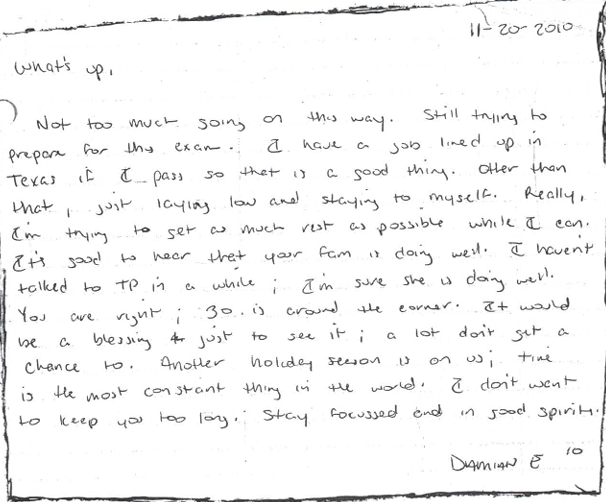 11-20-2010
What's up,
Not too much going on this way. Still trying to
prepare for this exam. I have a job lined up in
Texas if I pass so that is a good thing. Other than
that, just laying low and staying to myself. Really,
I'm trying to get as much rest as possible while I can.
It's good to hear that your fam is doing well. I haven't
talked to TP in a while; I'm sure she is doing well.
You are right; 30 is around the corner. It would
be a blessing just to see it; a lot don't get a
chance to. Another holiday season is on us; time
is the most constant thing in the world. I don't want
to keep you too long. Stay focussed and in good spirits.
DAMIAN E '10